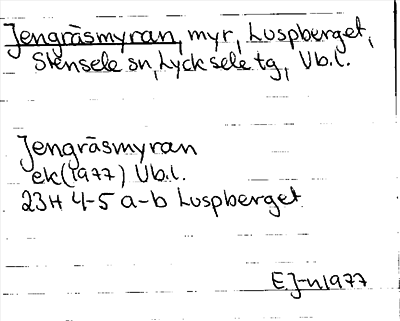 Jengräsmyran, myr, Luspberget,
Stensele sn, Lycksele tg, Vb.l.
Jengräsmyran
ek(1977) Vb.l.
23H 4-5 a-b Luspberget
EJ-n1977